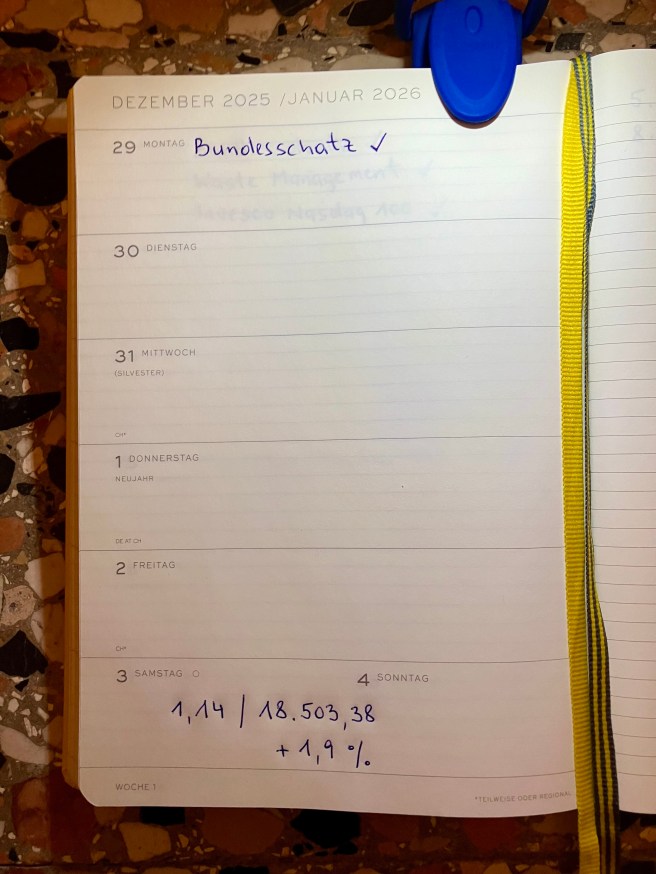 DEZEMBER 2025 /JANUAR 2026
29 MONTAG Bundesschatz ✓
Waste Management ✓
Nasdaq 100 ✓
30 DIENSTAG
31 MITTWOCH
(SILVESTER)
CH*
1 DONNERSTAG
NEUJAHR
DE AT CH
2 FREITAG
CH*
3 SAMSTAG 4 SONNTAG
1,14 | 18.503,38
+ 1,9 %
WOCHE 1 *TEILWEISE ODER REGIONAL